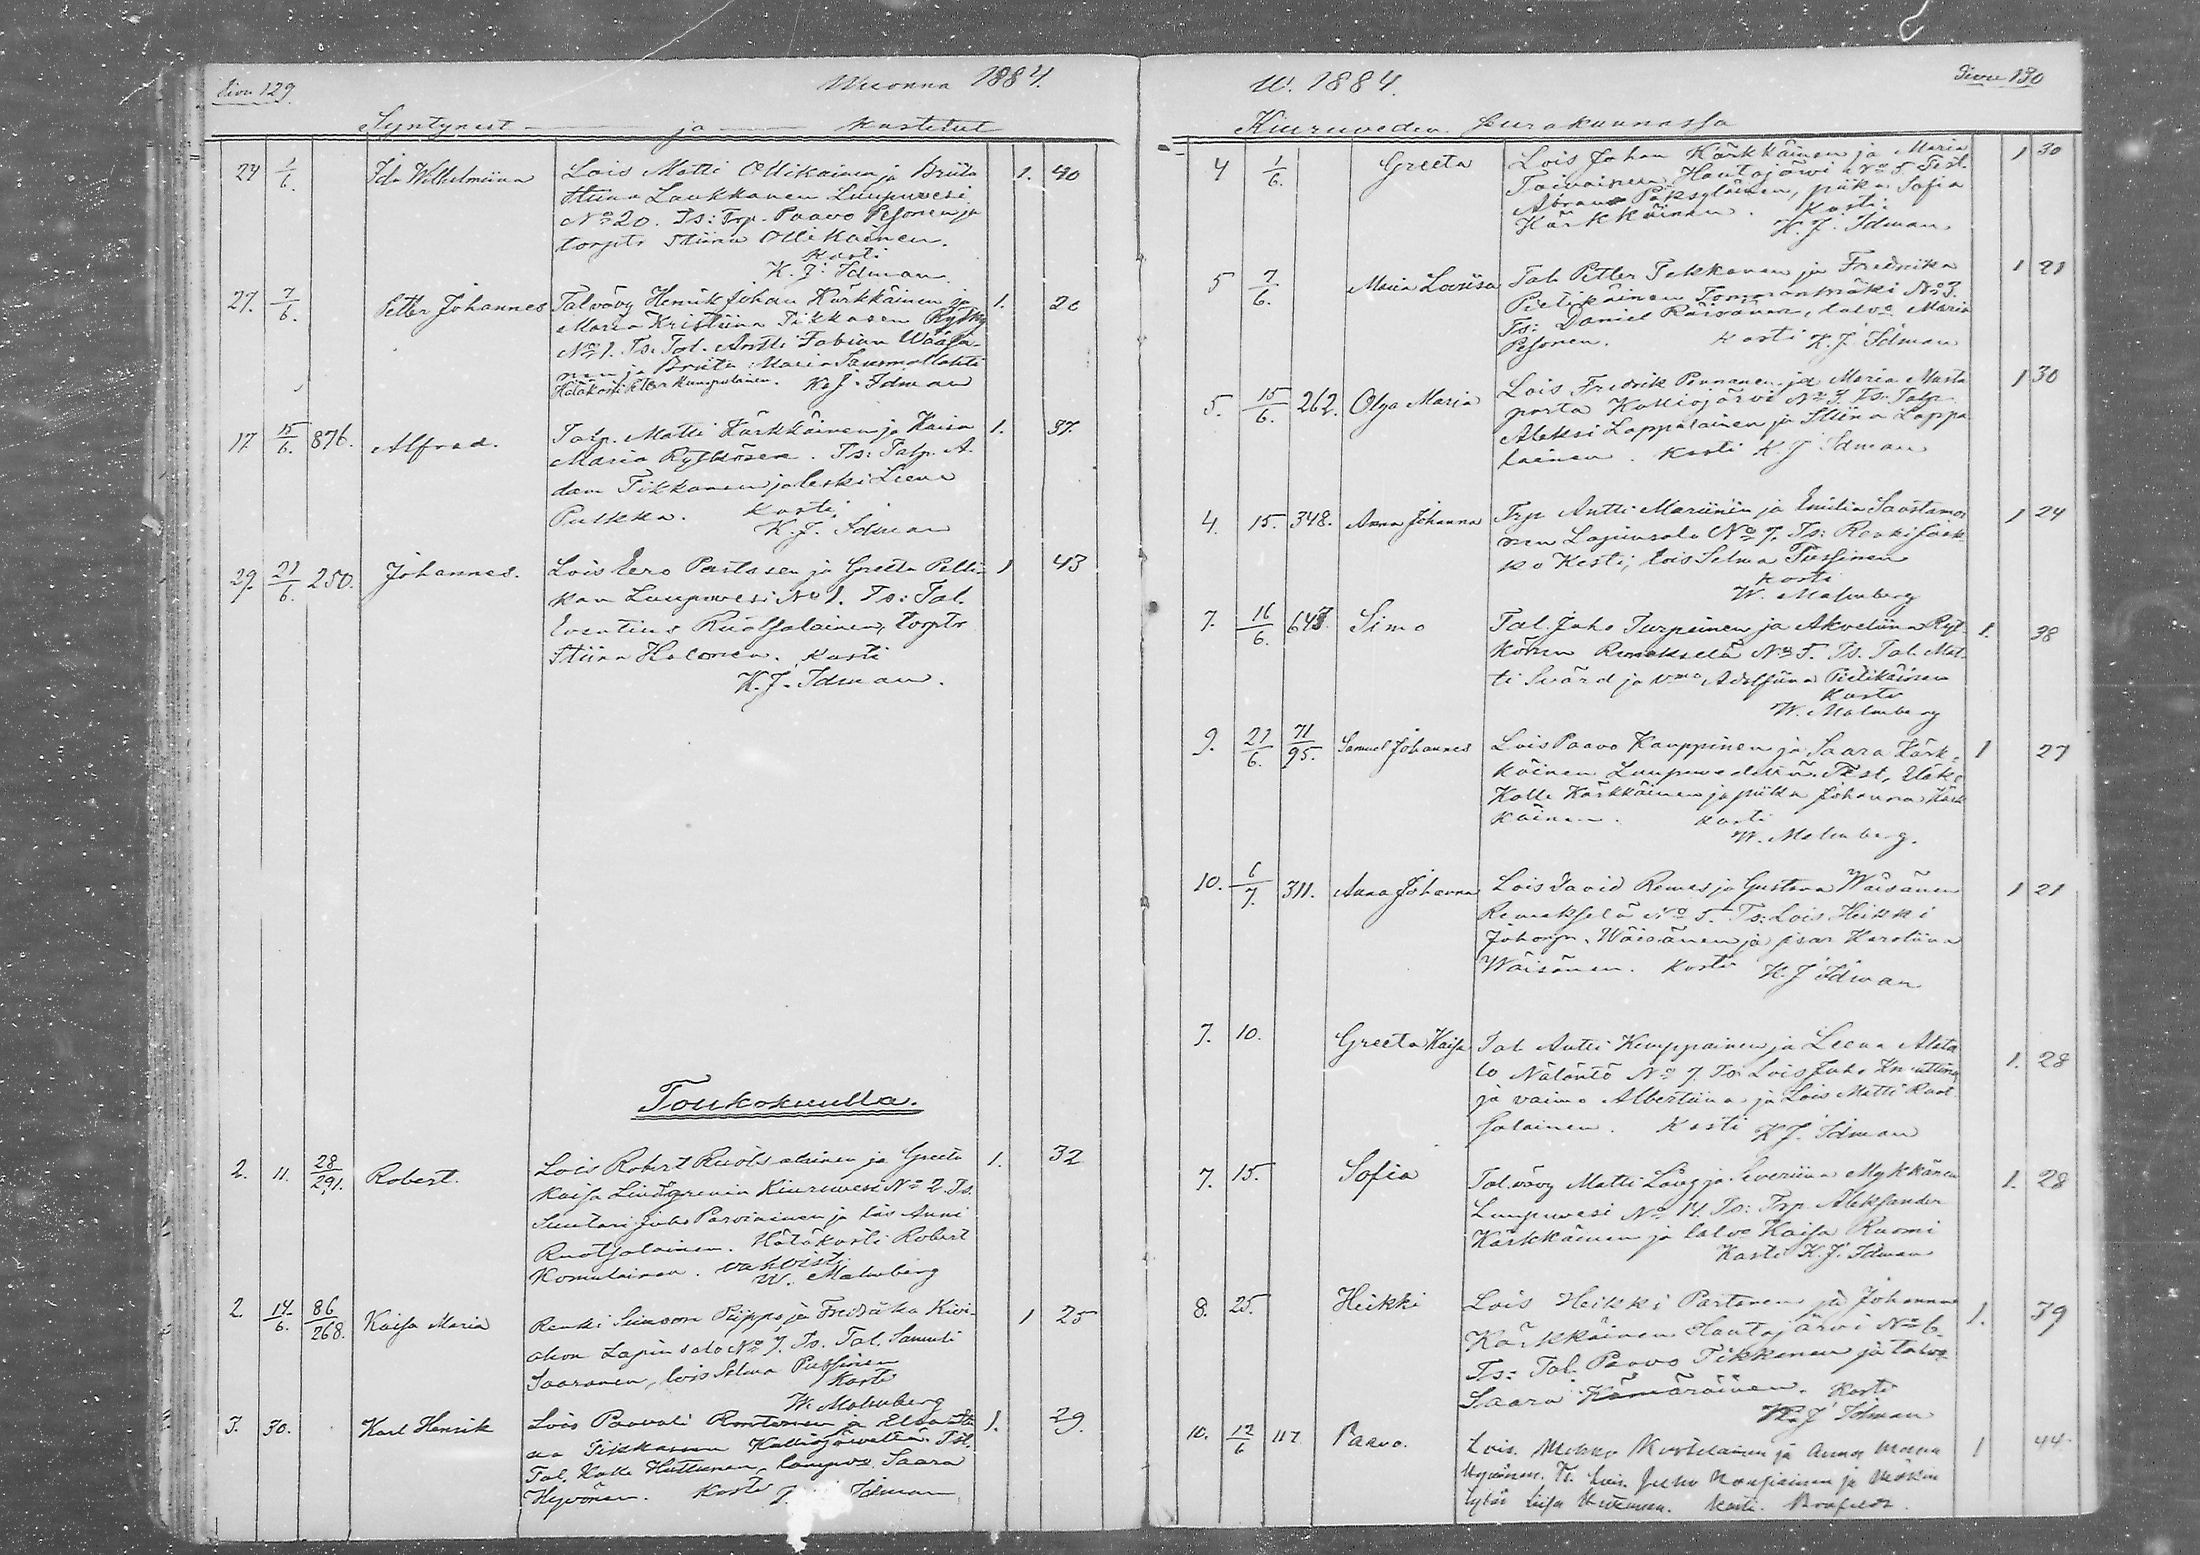 Sivu 129.
Wuonna 1884.
Syntyneet ja kastetut
24 1/6. Ida Wilhelmiina Lois Matti Ollikainen ja Briita 1. 40
Stiina Laukkanen Luupuwesi
No 20. Ts: Trp. Paavo Pesonen ja
torptr Stiina Ollikainen.
Kasti
K. J. Idman
27. 7/6. Petter Johannes Talvävy Henrik Johan Kärkkäinen ja 1. 20
Maria Kristiina Tikkasen
No 1. Ts. Tal. Antti Fabian Wääsä-
nen ja Briita Maria
Hätäkasti Petter Kumpulainen. K. J. Idman
17 15/6. 876. Alfred. Talp. Matti Kärkkäinen ja Kaisa 1. 37.
Maria Rytkösen. Ts: Talp. A-
dam Tikkanen ja leski Leena
Pulkka. Kasti
K. J. Idman
29. 21/6. 250. Johannes. Lois Eero Partasen ja Greeta Pelli- 1 43
kan Luupuwesi No 1. Ts: Tal.
Ruotsalainen, torptr
Stiina Halonen. Kasti
K. J. Idman.
Toukokuulla.
2. 11. 28/291. Robert. Lois Robert Ruotsalainen ja Greeta 1. 32
Kaisa Lindgrenin Kiuruwesi No 2. Ts.
Suutari Juho Parviainen ja Anni
Ruotsalainen. Hätäkasti Robert
Komulainen. vahvisti
W. Malmberg
2. 14/6. 86/268. Kaisa Maria Renki Simoon Piippo ja Fredrika Kivi- 1 25
ahon Lapinsalo No 7. Ts. Tal. Samuli
Saaranen, lois Selma Pussinen
Kasti
W. Malmberg
3. 30. Karl Henrik Lois Paavali ja Elsa Sti- 1. 29.
na Tikkasen Kalliojärveltä. Tst.
Tal. Kalle Huttunen, Saara
Hyvönen. Kasti Idman
Sivu 130
W. 1884.
Kiuruweden Seurakunnassa
4 1/6. Greeta Lois Johan Kärkkäinen ja Maria 1 30
Toivainen Hautajärwi No 5 Test.
Abram, piika Sofia
Kärkkäinen. Kasti:
K. J. Idman
5 7/6. Maria Lovisa Tal. Petter Tikkanen ja Fredrika 1 21
Pietikäinen Tommanmäki No 3.
Ts: Daniel Räisänen, talvo Maria
Pesonen. Kasti K. J. Idman
5. 15/6. 262. Olga Maria Lois Fredrik Pennanen ja Maria Musta 1 30
parta Kalliojärvi No 3. Ts. Talp.
Aleksi Lappalainen ja Stiina Lappa
lainen. Kasti K. J. Idman
4. 15. 348. Anna Johanna Trp Antti Mariinin ja Emilia Saastamoi 1 24
nen Lapinsalo No 7. Ts: Renki
Kesti, lois Selma Pussinen
Kasti
W. Malmberg
7. 16/6. 643. Simo Tal. Juho Turpeinen ja Akvelina Ryt- 1. 38
könen Remekselä No 5. Ts. Tal. Mat-
ti Svärd ja vmo Adolfiina Pietikäinen
Kasti
W. Malmberg
9. 21/6. 71/95. Samuel Johannes Lois Paavo Kauppinen ja Saara Kärk- 1 27
käinen Luupuvedeltä. Test.
Kalle Kärkkäinen ja piika Johanna Kärk
käinen. Kasti
W. Malmberg.
10. 6/7. 311. Anna Johanna Lois David Remes ja Gustava Wäisänen 1 21
Remekselä No 5. Ts: Lois Heikki
Johanp. Wäisänen ja sisar Karoliina
Wäisänen. Kasti K. J. Idman
7. 10. Greeta Kaisa Tal. Antti Kemppainen ja Leena Aleta 1. 28
lo Näläntö No 7. Ts: Lois Juho Knuuttinen
ja vaimo Albertiina ja Lois Matti Ruot
salainen. Kasti K. J. Idman
7. 15. Sofia Tal.vävy Matti Lång ja Severiina Mykkänen 1. 28
Luupuwesi No 14. Ts: Trp. Aleksander
Kärkkäinen ja talvo Kaisa Ruomi
Kasti K. J. Idman
8. 25. Heikki Lois Heikki Partanen ja Johanna 1. 39
Kärkkäinen Hautajärvi No 6.
Ts: Tal. Paavo Tikkanen ja talvo
Saara Kämäräinen. Kasti
K. J. Idman
10. 12/6 117. Paavo. Lois. Mikko ja Anna Maria 1 44.
Hyvönen. Ts. Lois. Juho ja
Liisa Huttunen. Kasti.